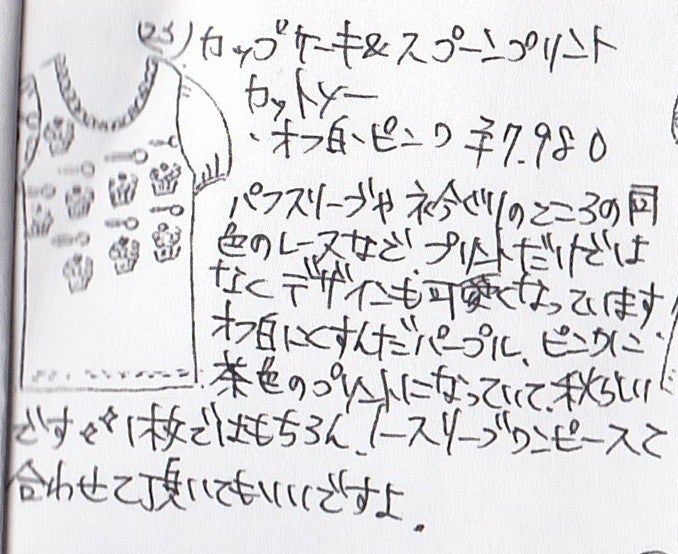 (23)カップケーキ&スプーンプリント
カットソー
・オフ白、ピンク ¥7.980
パフスリーブや衿ぐりのところの同
色のレースなど、プリントだけでは
なくデザインも可愛くなっています。
オフ白にくすんだパープル、ピンクに
茶色のプリントになっていて、秋らしい
です。1枚ではもちろん、ノースリーブワンピースと
合わせて頂いてもいいですよ。